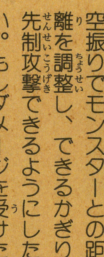 空振りでモンスターとの距
離を調整し、できるかぎり
先制攻撃できるようにした
い。もしダメージを受けた